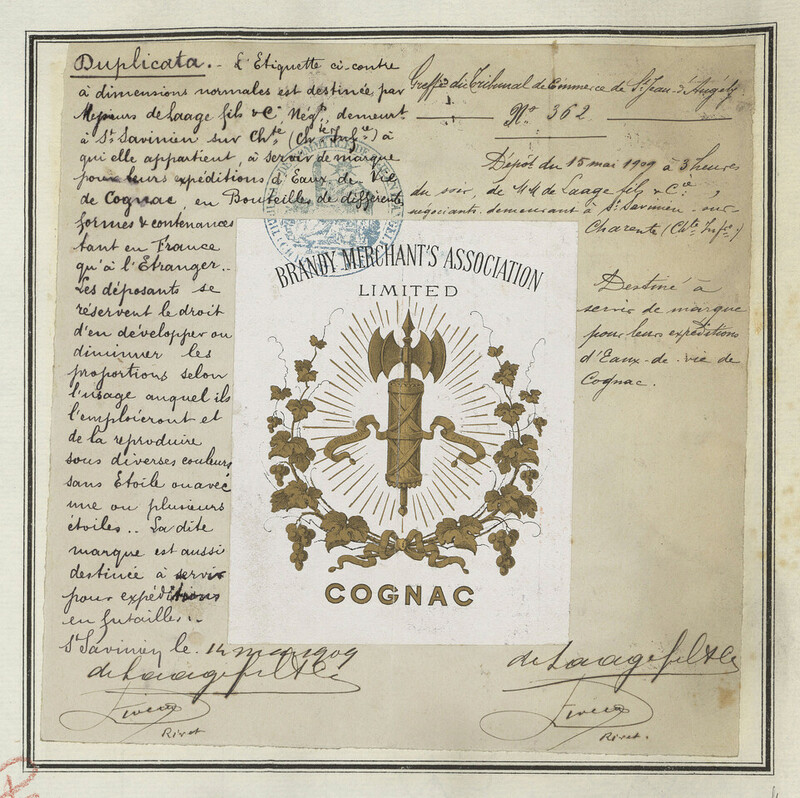 Duplicata. - L'Etiquette ci-contre
à dimensions normales est destinée par
Messieurs de Laage fils & Cie Négts, demeurt
à St Savinien sur Chte (Chte Infre) à
qui elle appartient, à servir de marque
pour leurs expéditions d'Eaux de Vie
de Cognac, en Bouteilles de différentes
formes & contenances
tant en France
qu'à l'Etranger..
Les déposants se
réservent le droit
d'en développer ou
diminuer les
proportions selon
l'usage auquel ils
l'emploieront et
de la reproduire
sous diverses couleurs
sans Etoile ou avec
une ou plusieurs
étoiles.. La dite
marque est aussi
destinée à servir
pour expéditions
en futailles..
St Savinien le 14 mai 1909
de Laage fils & Cie
Rivet
Greffe du Tribunal de Commerce de St Jean-d'Angély
No 362
Dépôt du 15 mai 1909 à 3 heures
du soir, de MM de Laage fils & Cie,
négociants, demeurant à St Savinien-sur-
Charente (Chte Infre)
Destiné à
servir de marque
pour leurs expéditions
d'Eaux-de-vie de
Cognac.
de Laage fils & Cie
Rivet.
BRANDY MERCHANT'S ASSOCIATION
LIMITED
COGNAC